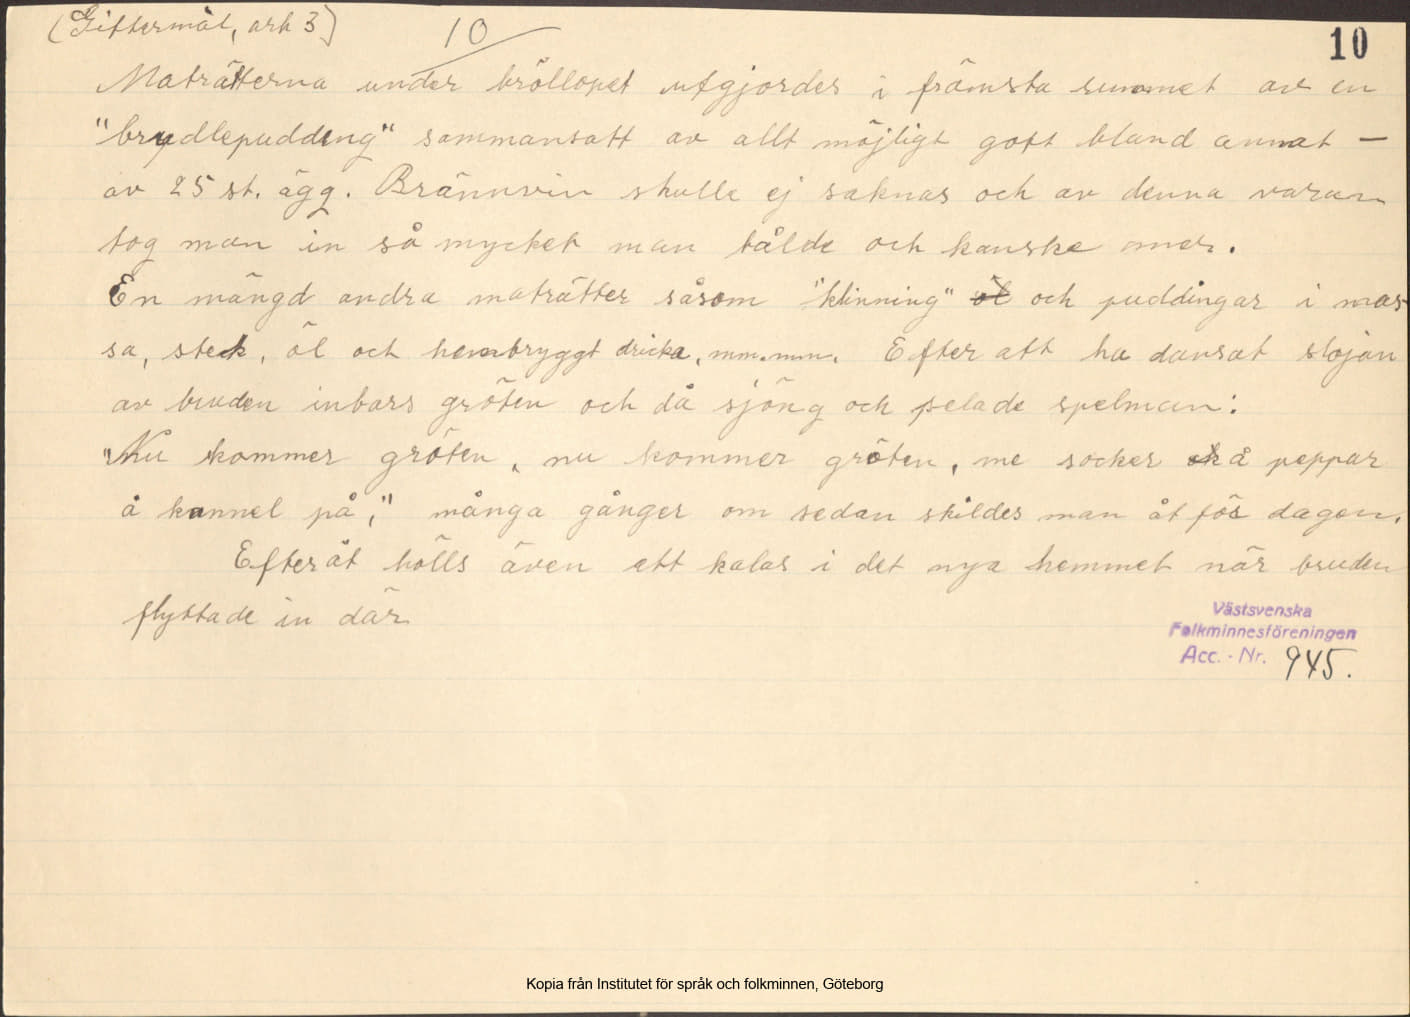 (Giftermål, ark 3)
10
10
Maträtterna under bröllopet utgjordes i främsta rummet av en
"brydlepudding" sammansatt av allt möjligt gott bland annat —
av 25 st. ägg. Brännvin skulle ej saknas och av denna varan
tog man in så mycket man tålde och kanske mer.
En mängd andra maträtter såsom "klinning" öl och puddingar i mas
sa, steck, öl och hembryggt dricka, m.m. m.m. Efter att ha dansat slöjan
av bruden inbars gröten och då sjöng ock pelade spelman:
"Nu kommer gröten, nu kommer gröten, me socker å peppar
å kannel på," många gånger om sedan skildes man åt för dagen.
Efteråt hölls även ett kalas i det nya hemmet när bruden
flyttade in där
Västsvenska
Folkminnesföreningen
Acc. - Nr. 945.
Kopia från Institutet för språk och folkminnen, Göteborg